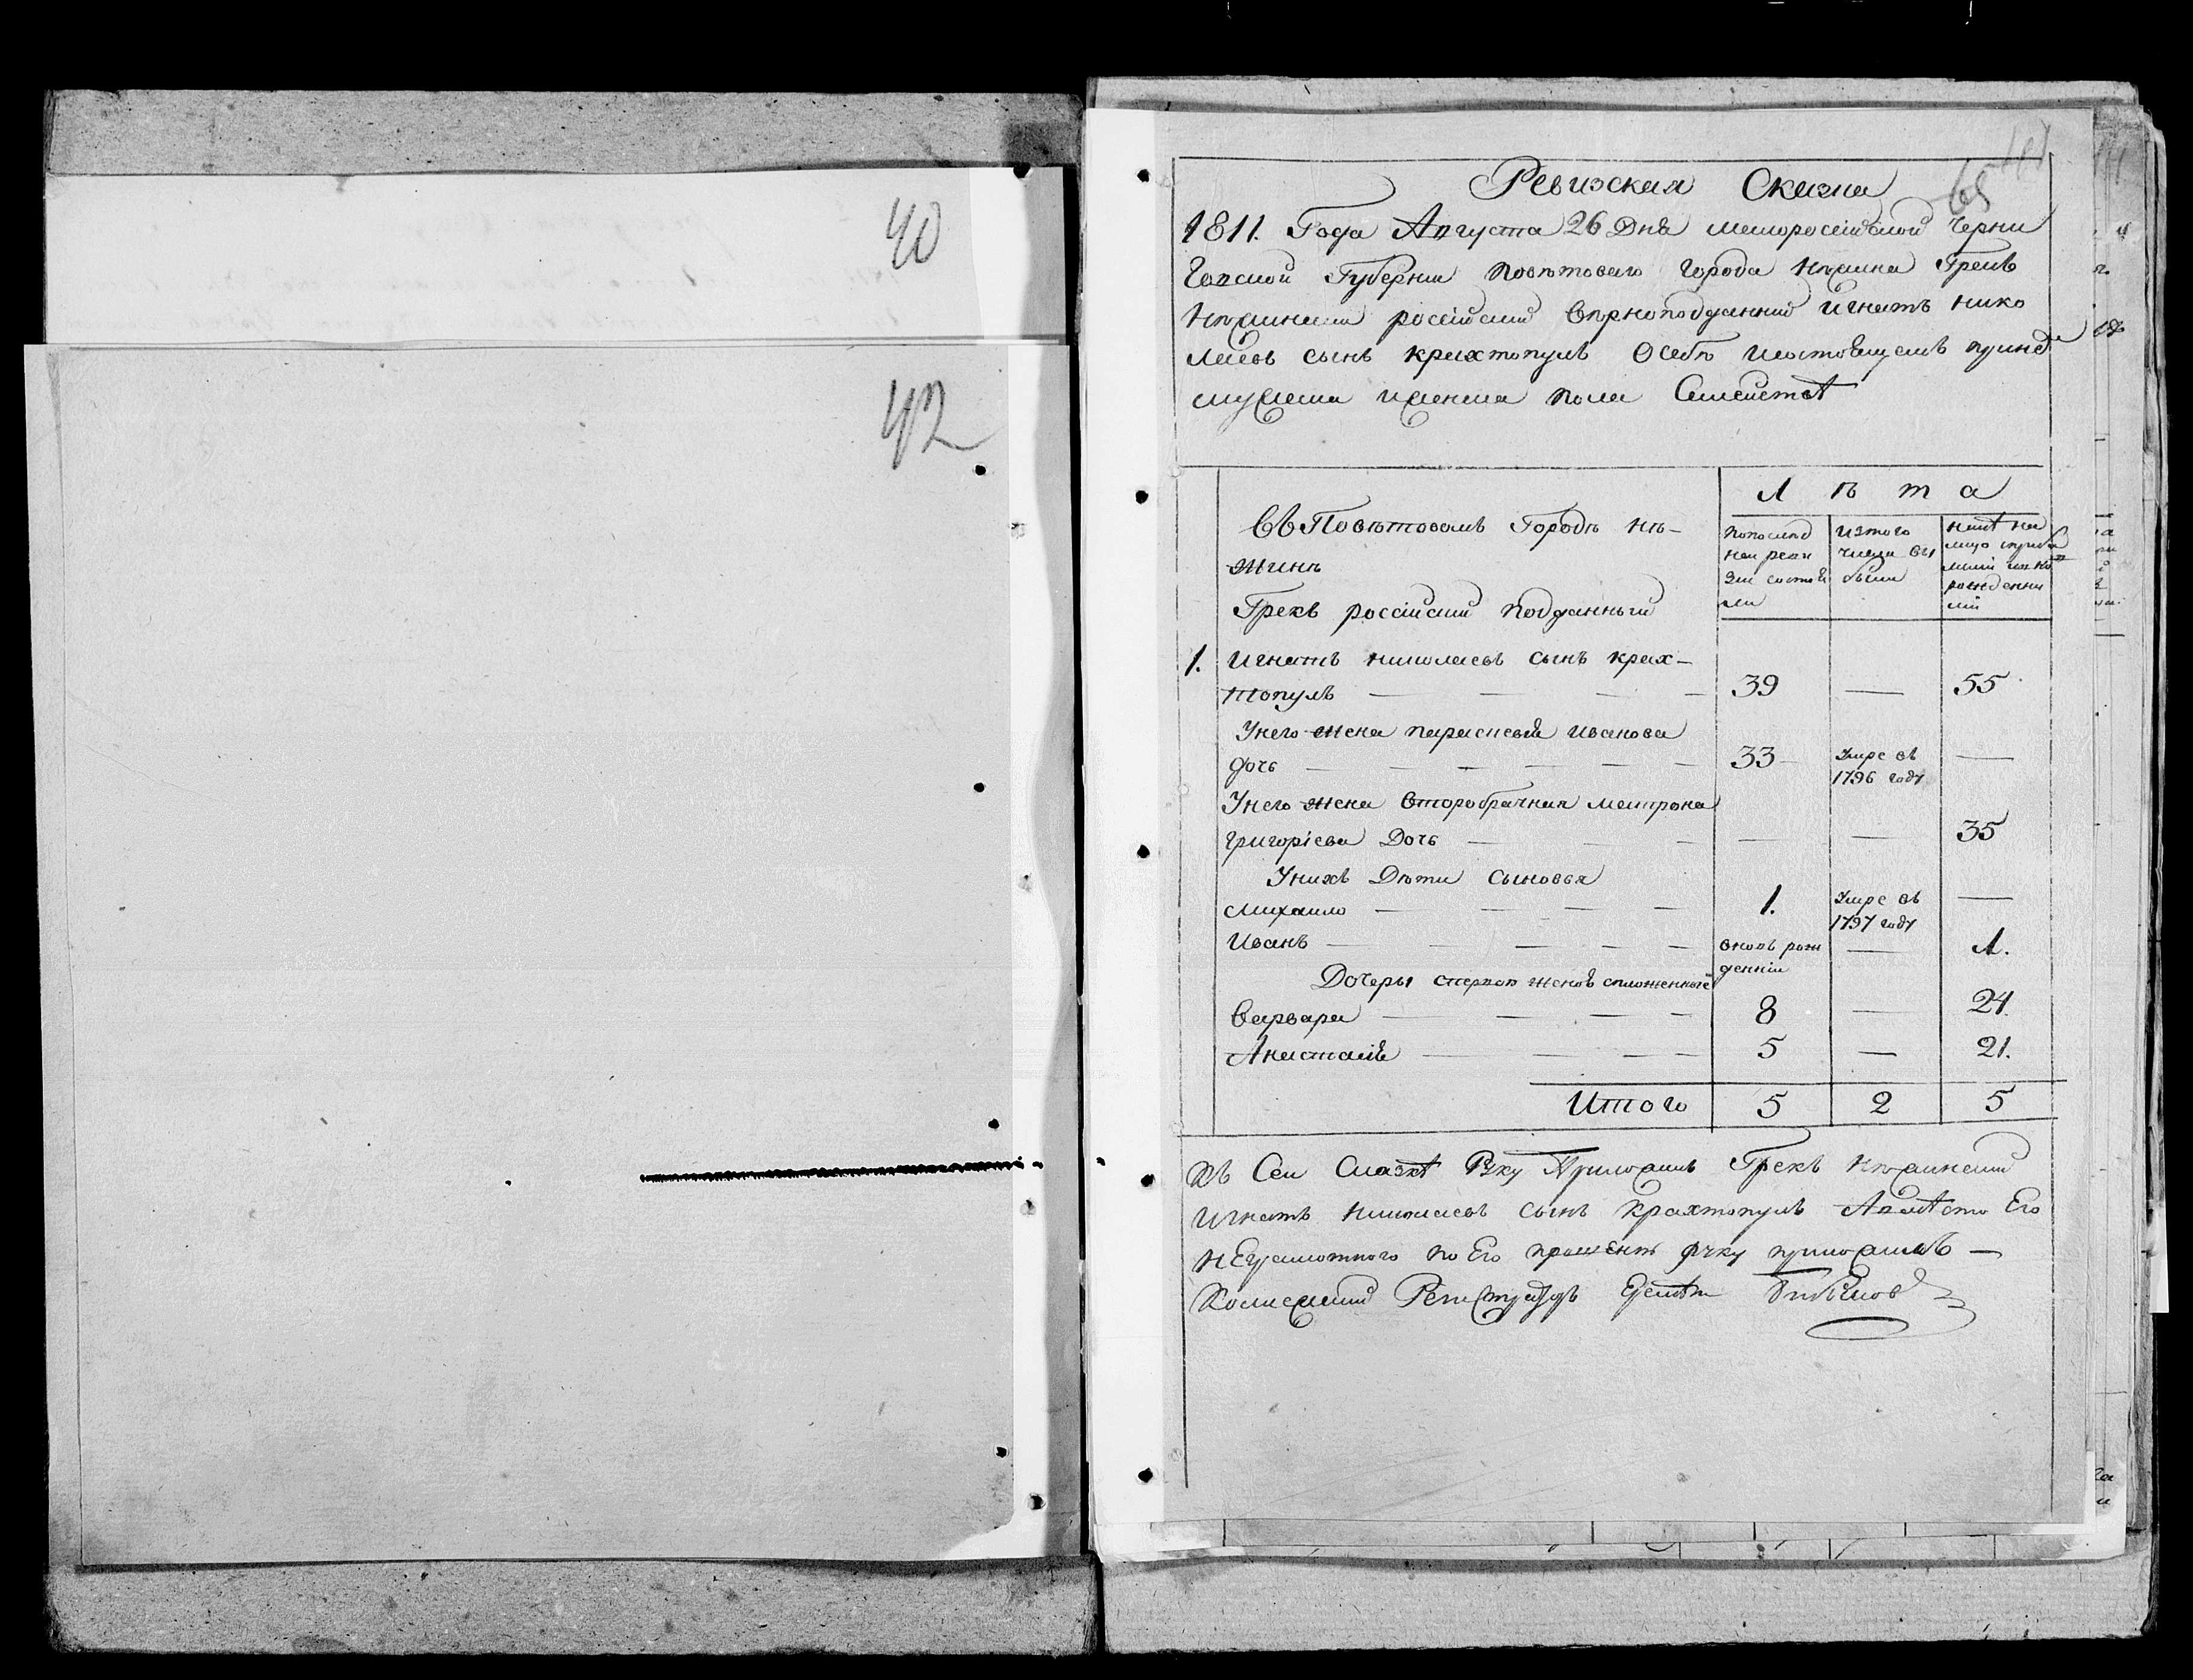 40
42
65
Ревизская Сказка
1811. Года Августа 26 Дня малороссійской Черни
говской Губернии поветоваго города Нѣжина Грекъ
Нѣжинский россійский вѣрноподданний Игнатъ Нико
лаевъ сынъ Крахтопулъ О себѣ и состоящемъ при нѣ
мужеска и женска пола Семействѣ
Л ѣ т а
Въ Повѣтовомъ Городѣ Нѣ-
жинѣ
Грекъ россійский подданный
по послѣд
ней реви
зіи состоя
ли
изтого
числа вы
были
нынѣ на
лицо
рожденни
ми
1. Игнатъ Николаевъ сынъ Крах-
топулъ — — — — 39 — 55
У него жена Параскевія Иванова
дочь — — — — — — 33 Умре въ 1796 году —
У него жена второбрачная Матрона
Григоріева Дочь — — — — — 35
У нихъ Дѣти Сыновья
Михайло — — — — 1. Умре въ 1797 году —
Иванъ — — — — — вновь рож денній — 1.
Дочеры сперною женою сположенные
Варвара — — — — 8 — 24
Анастасія — — — — 5 — 21.
Итого 5 2 5
Къ Сей Сказкѣ Руку Приложилъ Грекъ Нѣжинский
Игнатъ Николаевъ сынъ Крахтопулъ А вмѣсто Его
неграмотного по Его прошению руку приложилъ —
Колежский Регистраторъ